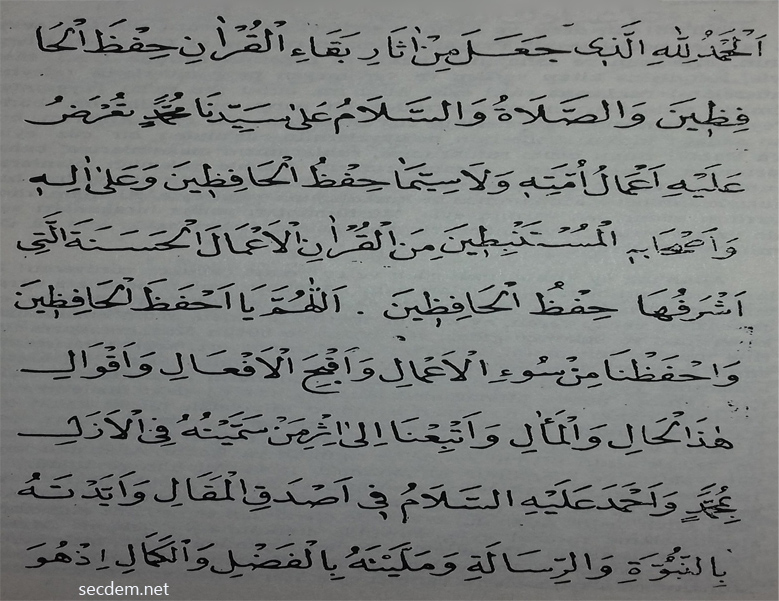 اَلْحَمْدُ لِلّٰهِ الَّذِى جَعَلَ مِنْ اٰثَارِ بَقَاءِ الْقُرْاٰنِ حِفْظَ الْحَا
فِظِينَ وَالصَّلَاةُ وَالسَّلَامُ عَلٰى سَيِّدِنَا مُحَمَّدٍ تُعْرَضُ
عَلَيْهِ اَعْمَالُ اُمَّتِهِ وَلَا سِيَّمَا حِفْظُ الْحَافِظِينَ وَعَلٰى اٰلِهِ
وَاَصْحَابِهِ الْمُسْتَنْبِطِينَ مِنَ الْقُرْاٰنِ الْاَعْمَالَ الْحَسَنَةَ الَّتِى
اَشْرَفُهَا حِفْظُ الْحَافِظِينَ . اَللّٰهُمَّ يَا اَحْفَظَ الْحَافِظِينَ
وَاحْفَظْنَا مِنْ سُوءِ الْاَعْمَالِ وَاَقْبَحِ الْاَفْعَالِ وَاَقْوَالِ
هٰذَا الْحَالِ وَالْمَأٰلِ وَاَتْبِعْنَا اِلٰى اِثْرِ مَنْ سَمَّيْتَهُ فِى الْاَزَلِ
بِمُحَمَّدٍ وَاَحْمَدَ عَلَيْهِ السَّلَامُ فِى اَصْدَقِ الْمَقَالِ وَاَيَّدْتَهُ
بِالنُّبُوَّةِ وَالرِّسَالَةِ وَمَلَيْتَهُ بِالْفَضْلِ وَالْكَمَالِ اِذْ هُوَ
secdem.net